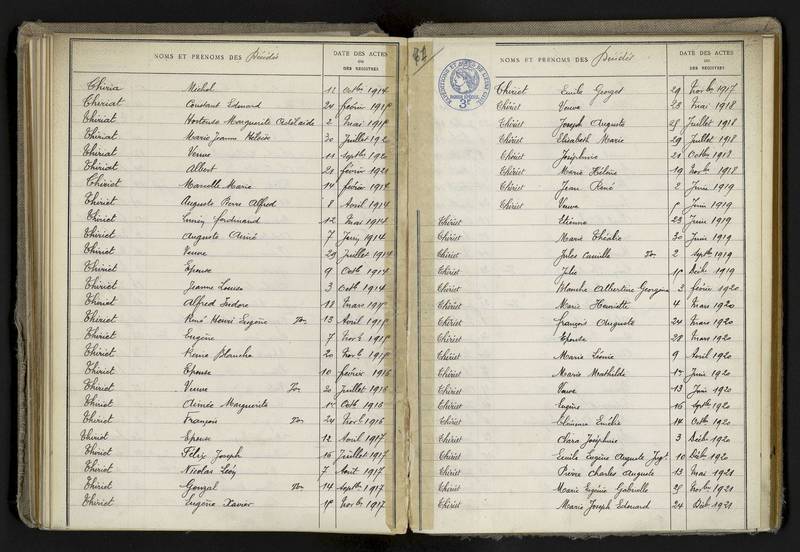 NOMS ET PRENOMS DES Décédés
DATE DES ACTES
OU
DES REGISTRES
Thiria Michel 12 Octbre 1914
Thiriat Constant Edouard 24 février
Thiriat Hortense Marguerite Adélaïde 2 Mai
Thiriat Marie Jeanne Héloïse 30 Juillet
Thiriat Veuve 11 Septbre 1920
Thiriat Albert 21 février 1921
Thiriet Marcelle Marie 14 février 1914
Thiriet Auguste Pierre Alfred 8 Avril 1914
Thiriet Lucien Ferdinand 12 Mai 1914
Thiriet Auguste Aimé 7 1914
Thiriet Veuve 29 Juillet 1914
Thiriet Epouse 9 Octb 1914
Thiriet Jeanne Louise 3 Octb 1914
Thiriet Alfred Isidore 18 Mars
Thiriet René Henri Eugène 13 Avril
Thiriet Eugène 7 Novb
Thiriet Reine Blanche 20 Novb
Thiriet Epouse 10 février 1916
Thiriet Veuve 20 Juillet 1916
Thiriet Aimée Marguerite Octb 1916
Thiriet François 24 Novb 1916
Thiriet Epouse 12 Avril 1917
Thiriet Félix Joseph 16 Juillet 1917
Thiriet Nicolas Léon 7 Août 1917
Thiriet Gonzal 14 Septbre 1917
Thiriet Eugène Xavier Novbre 1917
NOMS ET PRENOMS DES Décédés
DATE DES ACTES
OU
DES REGISTRES
3F
Thiriet Emile Georges 29 Novbre 1917
Thiriet Veuve 23 Mai 1918
Thiriet Joseph Auguste Juillet 1918
Thiriet Elisabeth Marie 29 Juillet 1918
Thiriet Joséphine 21 Octbre 1918
Thiriet Marie Hélène 19 Novbre 1918
Thiriet Jean René 2 Juin 1919
Thiriet Veuve Juin 1919
Thiriet Etienne 23 Juin 1919
Thiriet Marie Thérèse 30 Juin 1919
Thiriet Jules Camille 2 Septbre 1919
Thiriet Julie Décbre 1919
Thiriet Blanche Albertine Georgina 2 février 1920
Thiriet Marie Henriette 4 Mars 1920
Thiriet François Auguste 24 Mars 1920
Thiriet Epouse 28 Mars 1920
Thiriet Marie Léonie 9 Avril 1920
Thiriet Marie Mathilde Juin 1920
Thiriet Veuve 13 Juin 1920
Thiriet Eugène 16 Septbre 1920
Thiriet Emélie 14 Octbre 1920
Thiriet Clara Joséphine 3 Décbre 1920
Thiriet Emile Eugène Auguste 10 Décbre 1920
Thiriet Pierre Charles Auguste 13 Mai 1921
Thiriet Marie Eugénie Gabrielle Novbre 1921
Thiriet Marie Joseph Edouard 24 Décbre 1921